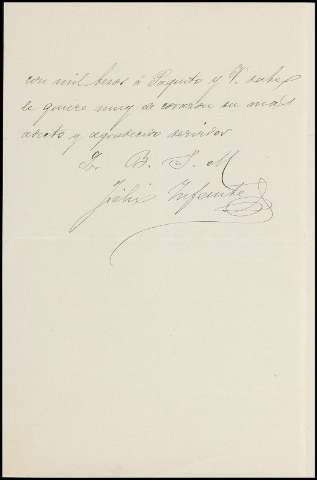 con mil besos á Paquito y V. sabe
le quiere muy de corazon su más
afecto y agradecido servidor
Q. B. S. M
Félix Infante